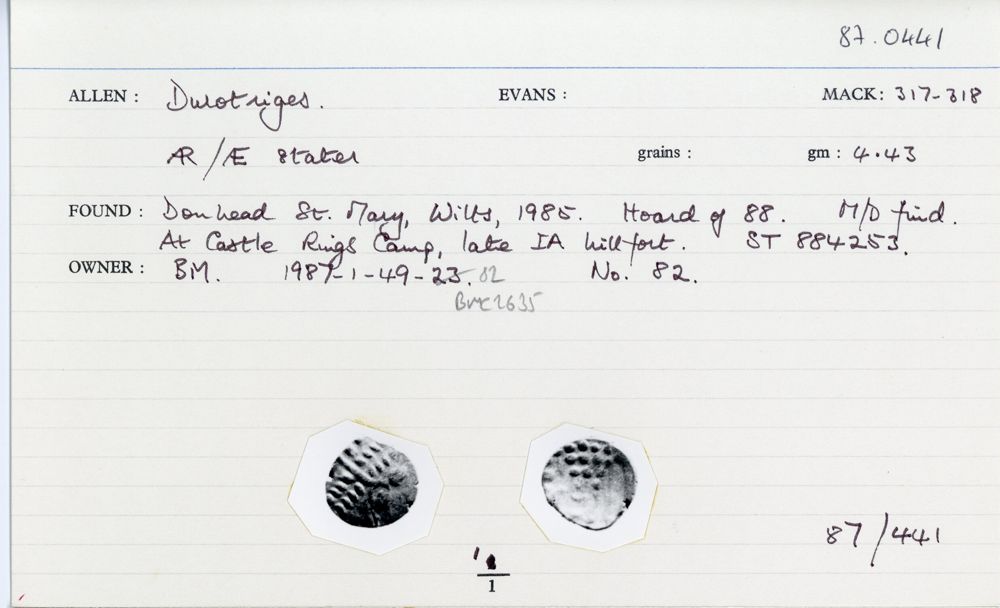 87.0441
ALLEN : Durotriges. EVANS : MACK: 317-318
AR/Æ stater grains : gm : 4.43
FOUND : Donhead St. Mary, Wilts, 1985. Hoard of 88. M/D find.
At Castle Rings Camp, late IA hillfort. ST 884253.
OWNER : BM. 1987-1-49-23. 82 No. 82.
BMC2635
87/441
1
1